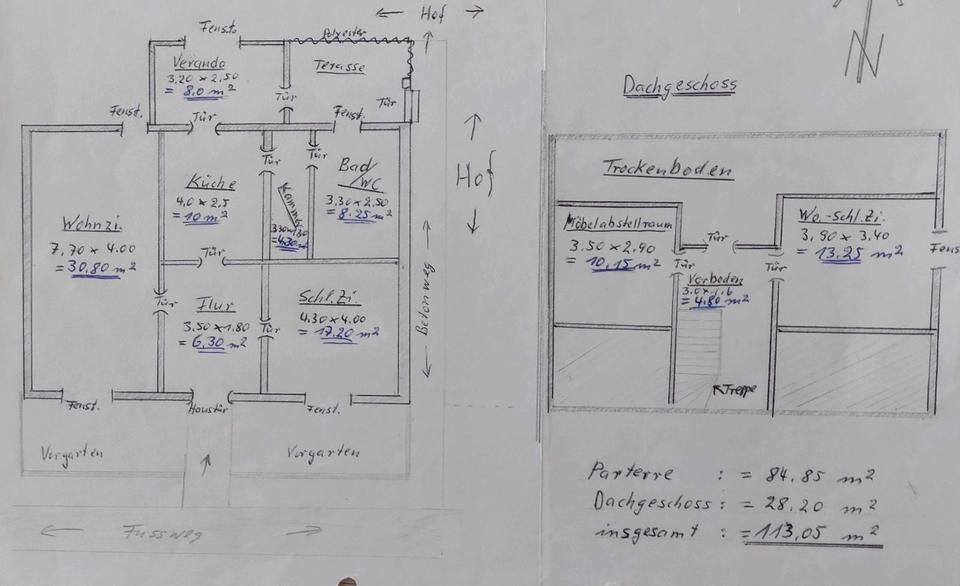 ← Hof →
Fenst.
Polyester
Veranda
3.20 x 2.50
= 8,0 m²
Terasse
Tür
Tür
Fenst.
Tür
Fenst.
Tür
Tür
Küche
4,0 x 2,5
= 10 m²
Kammer
= 4.30 m²
Bad/WC
3.30 x 2.50
= 8.25 m²
Hof
Wohnzi.
7,70 x 4.00
= 30,80 m²
Tür
Tür
Flur
3.50 x 1.80
= 6.30 m²
Tür
Schl.Zi
4.30 x 4.00
= 17.20 m²
← Betonweg →
Fenst.
Haustür
Fenst.
Vorgarten
Vorgarten
← Fussweg →
N
Dachgeschoss
Trockenboden
Möbelabstellraum
3.50 x 2.90
= 10,15 m²
Tür
Wo.-Schl.Zi.
3,90 x 3,40
= 13.25 m²
Fens
Tür
Tür
Vorboden
3.0 x 1.6
= 4.80 m²
Treppe
Parterre : = 84,85 m²
Dachgeschoss : = 28.20 m²
insgesamt : = 113,05 m²